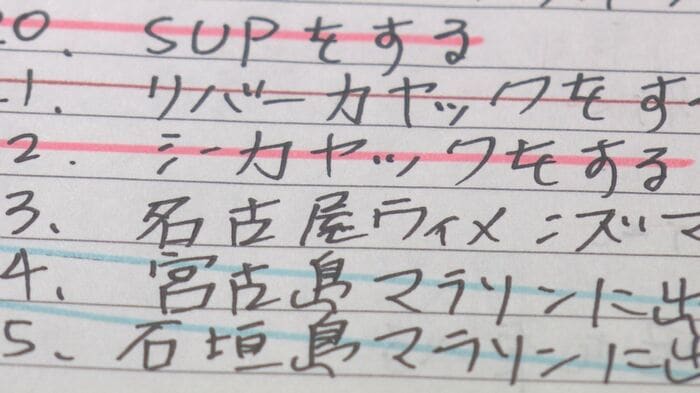 0. SUPをする
1. リバーカヤックをす
2. シーカヤックをする
3、名古屋ウィメンズマ
4、宮古島マラソンに出
5、石垣島マラソンに出